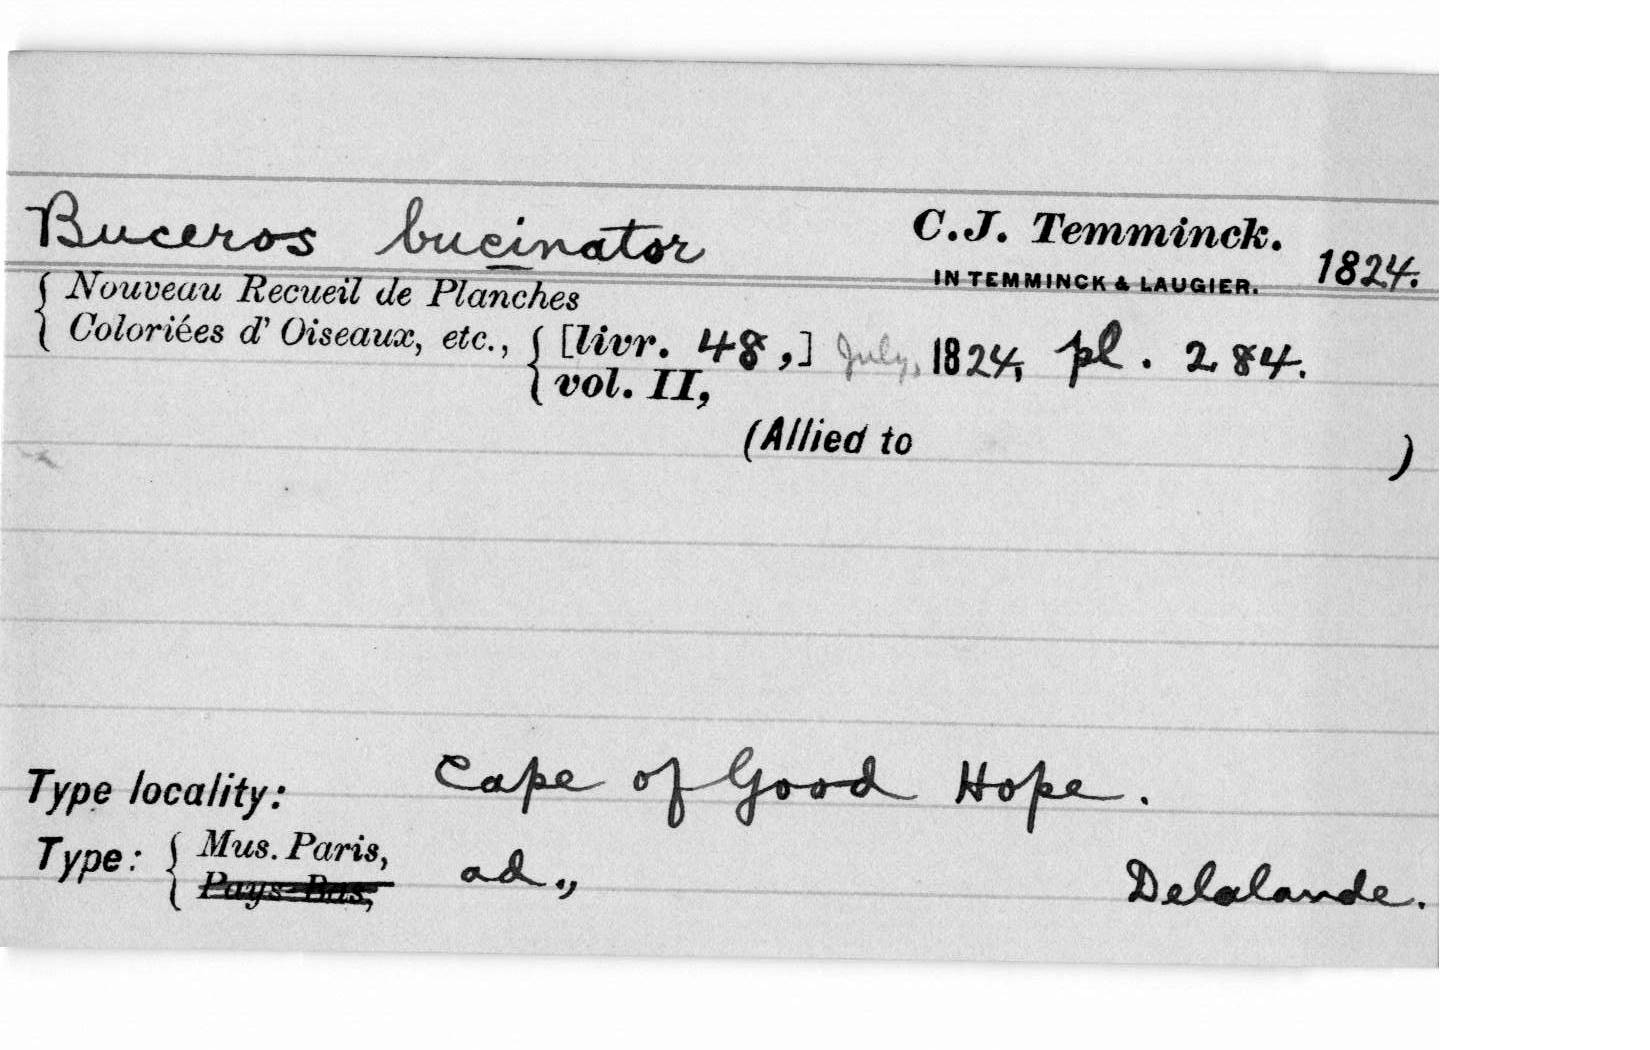 Buceros bucinator C.J. Temminck. 1824.
IN TEMMINCK & LAUGIER.
{ Nouveau Recueil de Planches
Coloriées d' Oiseaux, etc., { [livr. 48,] July, 1824, pl. 284.
vol. II,
(Allied to )
Type locality: Cape of Good Hope.
Type: { Mus. Paris, ad., Delalande.
Pays-Bas,